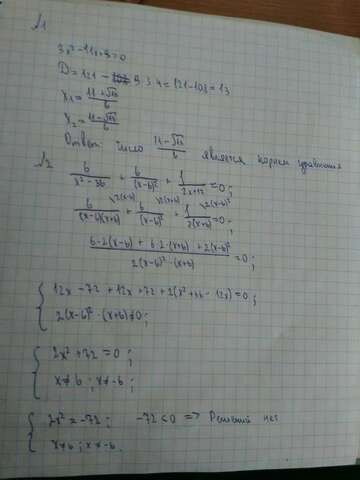 №1
3x² - 11x + 9 = 0
D = 121 - 9·3·4 = 121 - 108 = 13
x₁ = (11 + √13)/6
x₂ = (11 - √13)/6
Ответ: число (11 - √13)/6 является корнем уравнения
№2
6/(x² - 36) + 6/(x-6)² + 1/(2x+12) = 0;
6/((x-6)(x+6)) \2(x-6) + 6/(x-6)² \2(x+6) + 1/(2(x+6)) \(x-6)² = 0;
(6·2(x-6) + 6·2·(x+6) + 2(x-6)²)/(2(x-6)²·(x+6)) = 0;
{ 12x - 72 + 12x + 72 + 2(x² + 36 - 12x) = 0;
2(x-6)²·(x+6) ≠ 0;
{ 2x² + 72 = 0;
x ≠ 6; x ≠ -6;
{ 2x² = -72; -72 < 0 => Решений нет
x ≠ 6; x ≠ -6.